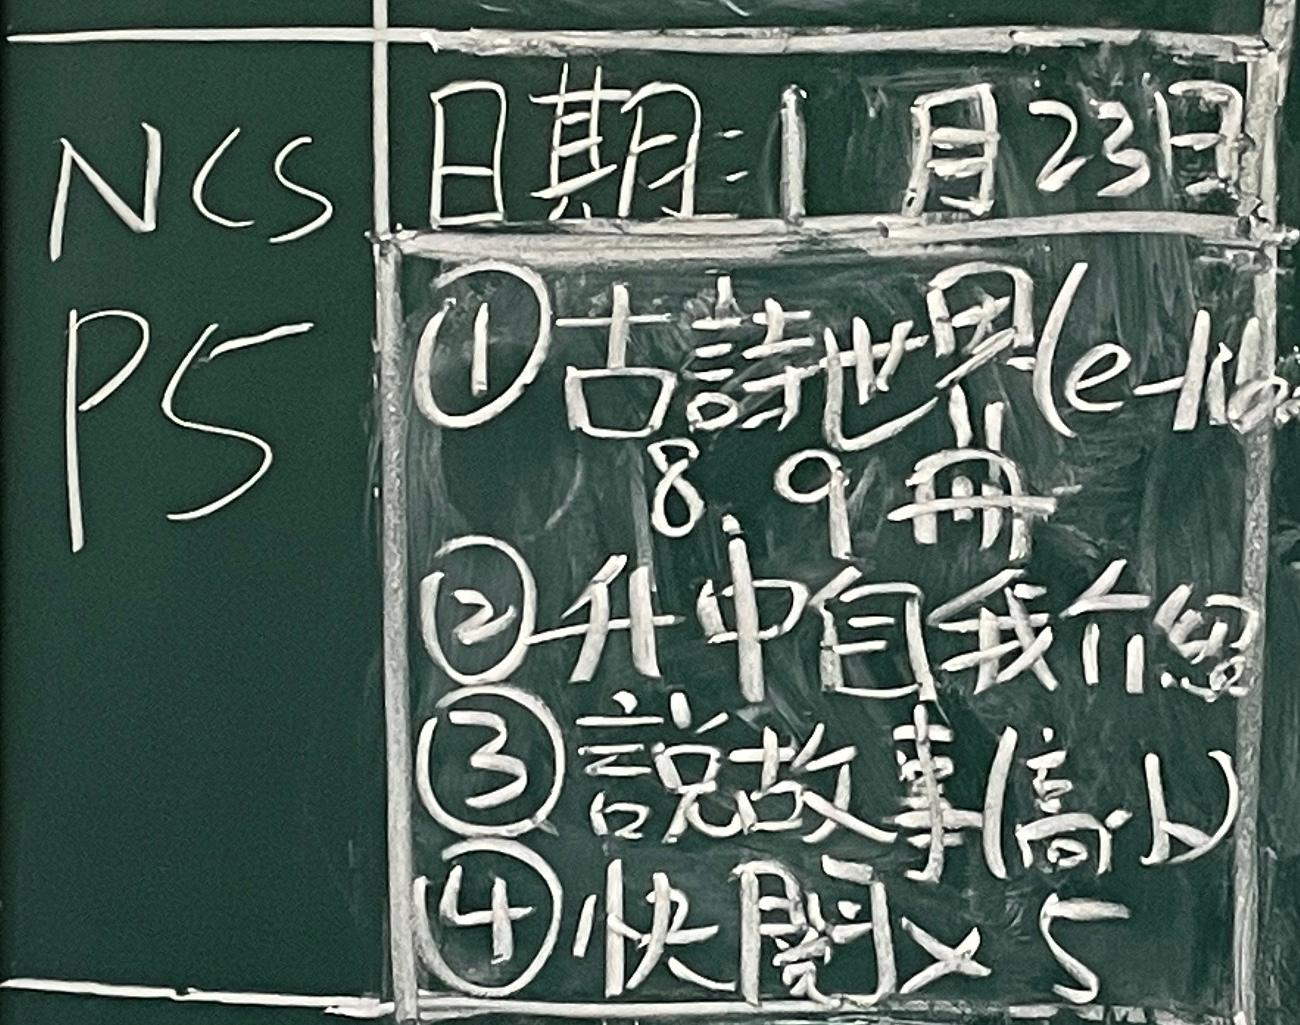 NCS
P5
日期:1月23日
①古詩世界(e-
8 9 冊
②升中自我介紹
③說故事(高小)
④快閱×5